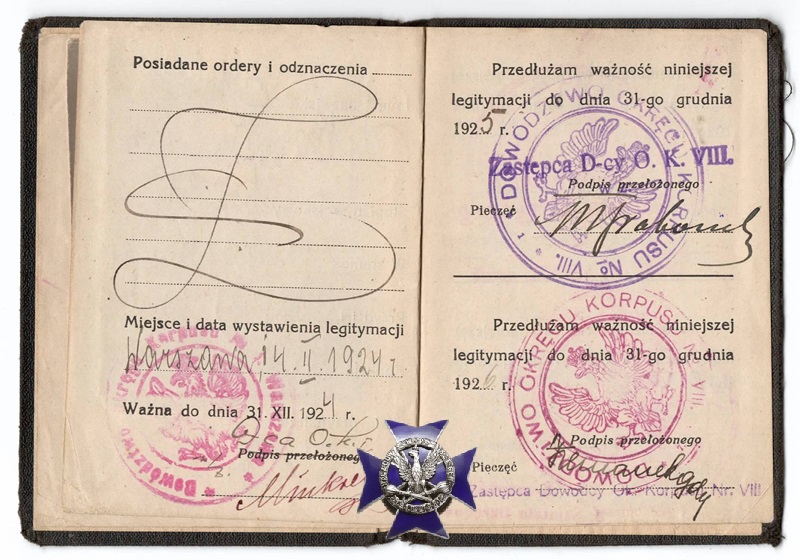 Posiadane ordery i odznaczenia
Miejsce i data wystawienia legitymacji
Warszawa, 14. II. 1924 r.
Ważna do dnia 31. XII. 1924 r.
Dca O.K.I.
Podpis przełożonego
Przedłużam ważność niniejszej
legitymacji do dnia 31-go grudnia
1925 r.
DOWÓDZTWO OKRĘGU KORPUSU No VIII.
Zastępca D-cy O. K. VIII.
Podpis przełożonego
Pieczęć
Przedłużam ważność niniejszej
legitymacji do dnia 31-go grudnia
1926 r.
OKRĘGU KORPUSU No VIII.
Podpis przełożonego
Pieczęć
Zastępca Dowódcy Ok. Korpusu Nr. VIII